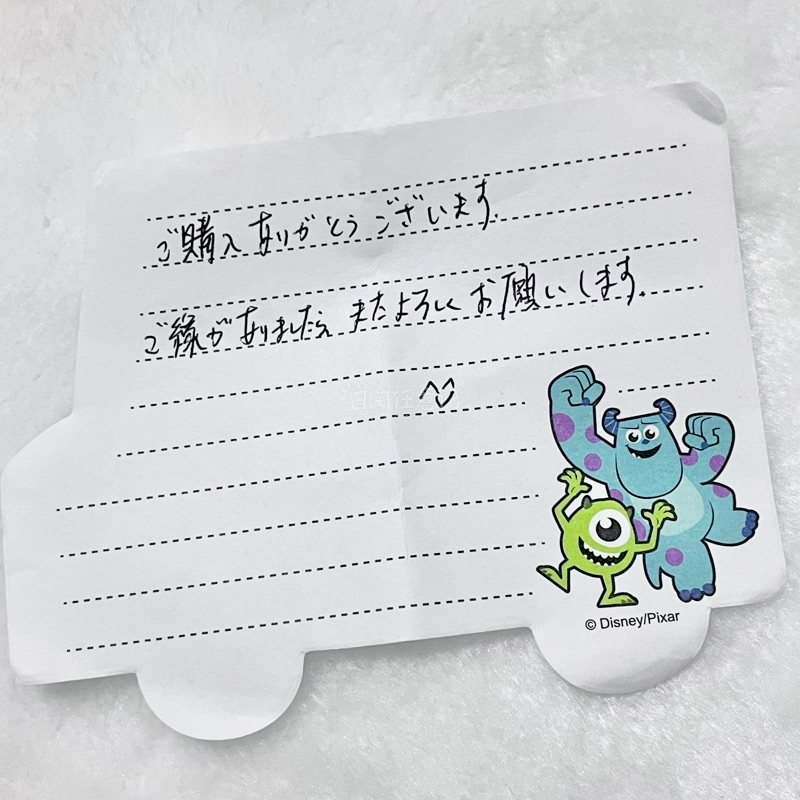 ご購入ありがとうございます.
ご縁がありましたら またよろしくお願いします.
© Disney/Pixar